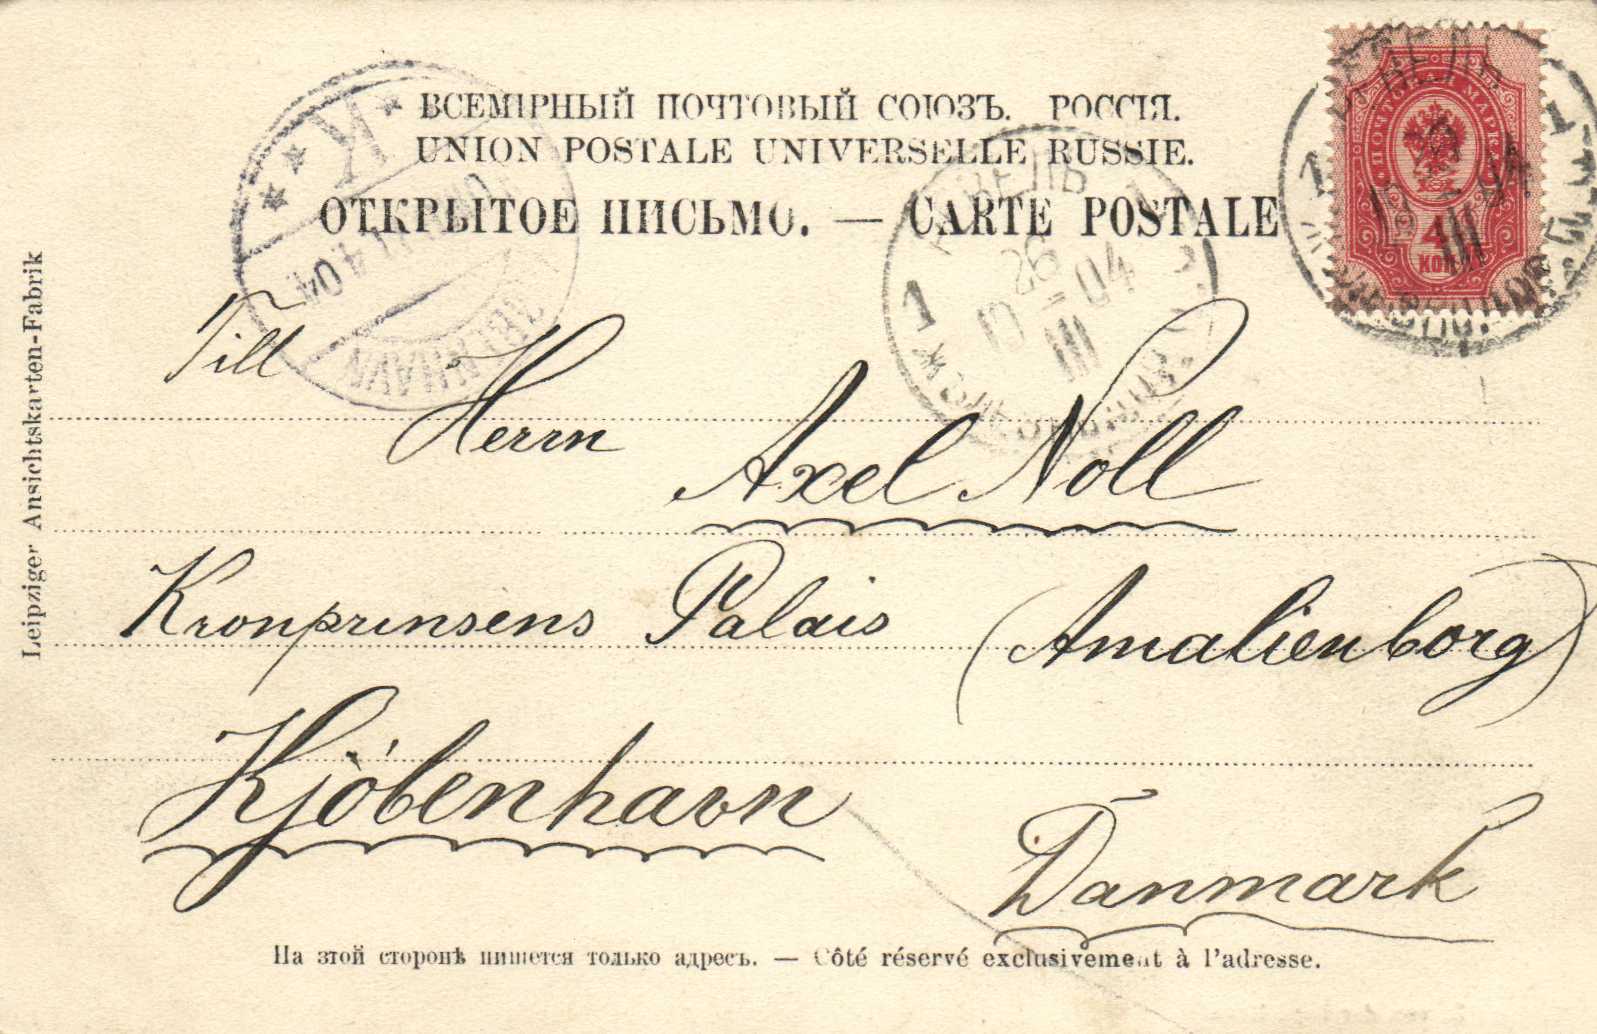 ВСЕМІРНЫЙ ПОЧТОВЫЙ СОЮЗЪ. РОССІЯ.
UNION POSTALE UNIVERSELLE RUSSIE.
ОТКРЫТОЕ ПИСЬМО. — CARTE POSTALE
РЕВЕЛЬ
1
26
III
04
РЕВЕЛЬ
1
МАРКА
4
КОП
III
04
K
4.04
KJØBENHAVN
Leipziger Ansichtskarten-Fabrik
Till
Herrn
Axel Noll
Kronprinsens Palais (Amalienborg)
Kjöbenhavn
Danmark
На этой сторонѣ пишется только адресъ. — Côté réservé exclusivement à l'adresse.